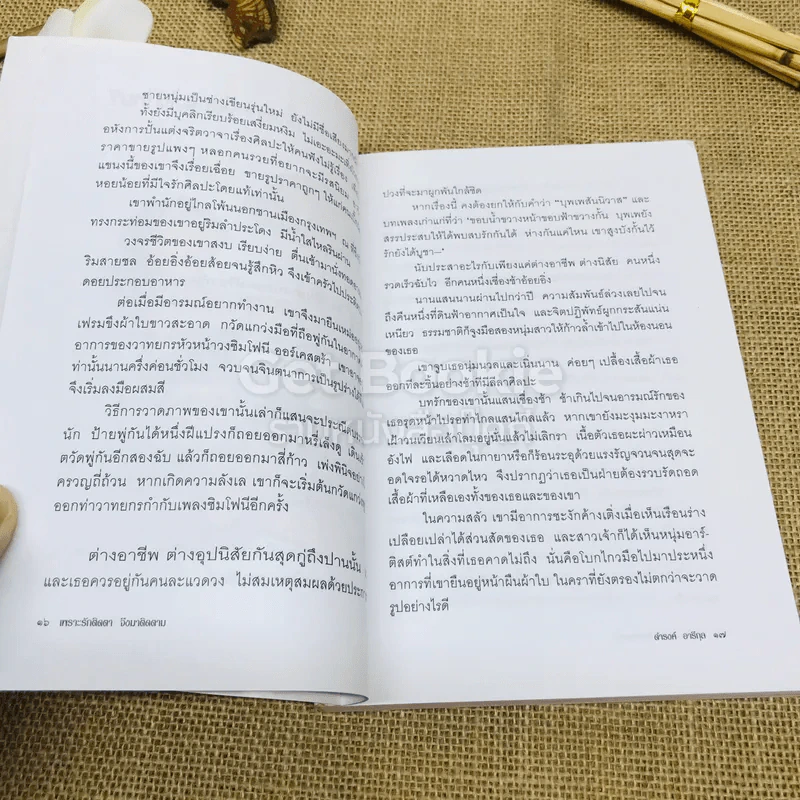 ชายหนุ่มเป็นช่างเขียนรุ่นใหม่ ยังไม่มีชื่อเสียง
ทั้งยังมีบุคลิกเรียบร้อยเสงี่ยมหงิม ไม่เอะอะ
อหังการปั้นแต่งจริตวาจาเรื่องศิลปะให้คนฟังไม่รู้เรื่อง
ราคาขายรูปแพงๆ หลอกคนรวยที่อยากจะมีรสนิยม
แขนงนี้ของเขาจึงเรื่อยเฉื่อย ขายรูปราคาถูกๆ ให้แก่
หอยน้อยที่มีใจรักศิลปะโดยแท้เท่านั้น
เขาพำนักอยู่ไกลโพ้นนอกชานเมืองกรุงเทพฯ ณ
ทรงกระท่อมของเขาอยู่ริมลำประโดง มีน้ำใสไหลรินผ่าน
วงจรชีวิตของเขาสงบ เรียบง่าย ตื่นเช้ามานั่งทอด
ริมสายชล อ้อยอิ่งอ้อยส้อยจนรู้สึกหิว จึงเข้าครัวไป
ดอยประกอบอาหาร
ต่อเมื่อมีอารมณ์อยากทำงาน เขาจึงมายืน
เฟรมขึงผ้าใบขาวสะอาด กวัดแกว่งมือที่ถือพู่กันในอากาศ
อาการของวาทยกรหัวหน้าวงซิมโฟนี ออร์เคสตร้า เขา
ท่านั้นนานครึ่งค่อนชั่วโมง จวบจนจินตนาการเป็นรูปร่าง
จึงเริ่มลงมือผสมสี
วิธีการวาดภาพของเขานั้นเล่าก็แสนจะประณีต
นัก ป้ายพู่กันได้หนึ่งฝีแปรงก็ถอยออกมาหรี่เล็งดู เดิน
ตวัดพู่กันอีกสองฉับ แล้วก็ถอยออกมาสี่ก้าว เพ่งพินิจ
ครวญถี่ถ้วน หากเกิดความลังเล เขาก็จะเริ่มต้นกวัด
ออกท่าวาทยกรกำกับเพลงซิมโฟนีอีกครั้ง
ต่างอาชีพ ต่างอุปนิสัยกันสุดกู่ถึงปานนั้น
และเธอควรอยู่กันคนละแวดวง ไม่สมเหตุสมผลด้วย
๑๖ เพราะรักติดตา จึงมาติดตาม
ปวงที่จะมาผูกพันใกล้ชิด
หากเรื่องนี้ คงต้องยกให้กับคำว่า “บุพเพสันนิวาส” และ
บทเพลงเก่าแก่ที่ว่า ‘ขอบน้ำขวางหน้าขอบฟ้าขวางกัน บุพเพยัง
สรรประสบให้ได้พบสบรักกันได้ ห่างกันแค่ไหน เขาสูงบังกั้นไว้
รักยังได้บูชา—’
นับประสาอะไรกับเพียงแค่ต่างอาชีพ ต่างนิสัย คนหนึ่ง
รวดเร็วฉับไว อีกคนหนึ่งเชื่องช้าอ้อยอิ่ง
นานแสนนานผ่านไปกว่าปี ความสัมพันธ์ล่วงเลยไปจน
ถึงคืนหนึ่งที่ดินฟ้าอากาศเป็นใจ และจิตปฏิพัทธ์ผูกกระสันแน่น
เหนียว ธรรมชาติก็จูงมือสองหนุ่มสาวให้ก้าวล้ำเข้าไปในห้องนอน
ของเธอ
เขาจูบเธอนุ่มนวลและเนิ่นนาน ค่อยๆ เปลื้องเสื้อผ้าเธอ
ออกทีละชิ้นอย่างช้าทีมีลีลาศิลปะ
บทรักของเขานั้นแสนเชื่องช้า ช้าเกินไปจนอารมณ์รักของ
เธอรุดหน้าไปรอท่าไกลแสนไกลแล้ว หากเขายังมะงุมมะงาหรา
เฝ้าวนเวียนเล้าโลมอยู่นั้นแล้วไม่เลิกรา เนื้อตัวเธอผะผ่าวเหมือน
อังไฟ และเลือดในกายาหรือก็ร้อนระอุด้วยแรงรัญจวนจนสุดจะ
อดใจรอได้หวาดไหว จึงปรากฏว่าเธอเป็นฝ่ายต้องรวบรัดถอด
เสื้อผ้าที่เหลือเองทั้งของเธอและของเขา
ในความสลัว เขามีอาการชะงักค้างเติ่งเมื่อเห็นเรือนร่าง
เปลือยเปล่าได้ส่วนสัดของเธอ และสาวเจ้าก็ได้เห็นหนุ่มอาร์-
ติสต์ทำในสิ่งที่เธอคาดไม่ถึง นั่นคือโบกไกวมือไปมาประหนึ่ง
อาการที่เขายืนอยู่หน้าผืนผ้าใบ ในคราที่ยังตรองไม่ตกว่าจะวาด
รูปอย่างไรดี
ดำรงค์ อารีกุล ๑๗
Get Bookie